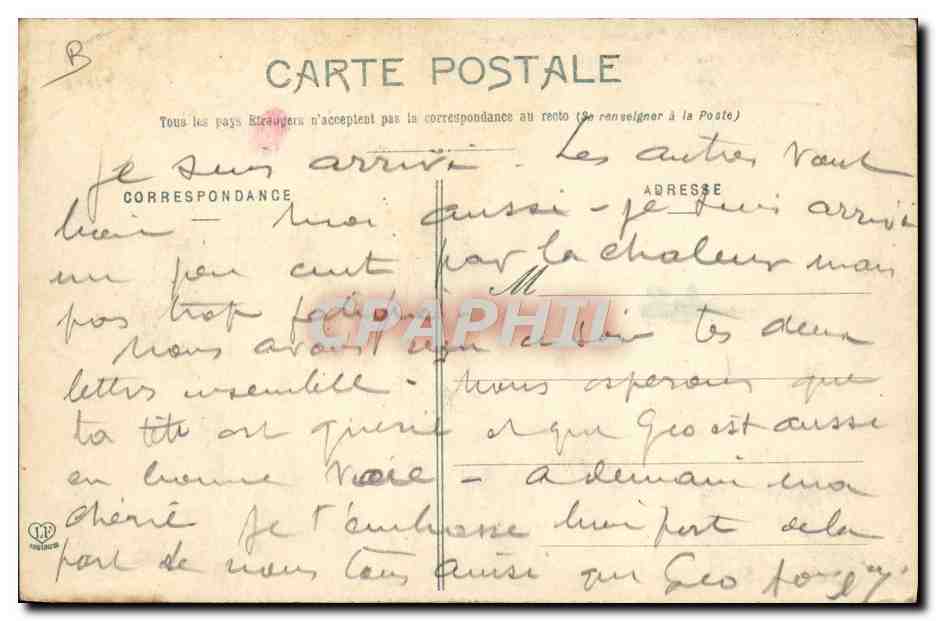 B
CARTE POSTALE
Tous les pays Etrangers n'acceptent pas la correspondance au recto (Se renseigner à la Poste)
je suis arrivé - Les autres vont
CORRESPONDANCE
ADRESSE
bien - moi aussi - je suis arrivé
un peu cuit par la chaleur mais
M
pas trop fatigué
CPAPHIL
Nous avons reçu tes deux
lettres ensemble - Nous esperons que
ta tête est guérie et que Geo est aussi
en bonne voie - a demain ma
chérie je t'embrasse bien fort de la
LF
part de nous tous ainsi que Geo